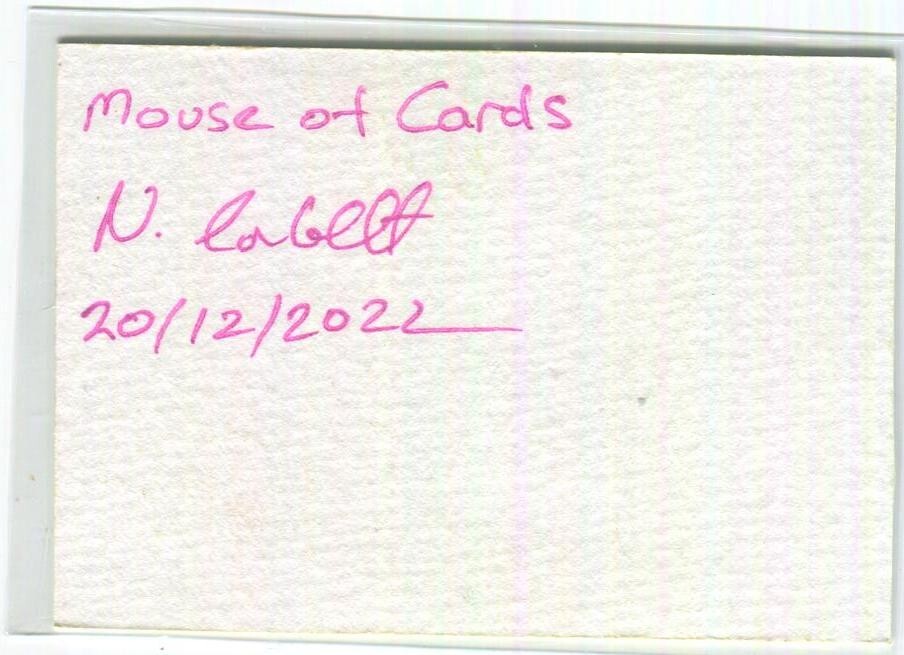 Mouse of Cards
N.
20/12/2022